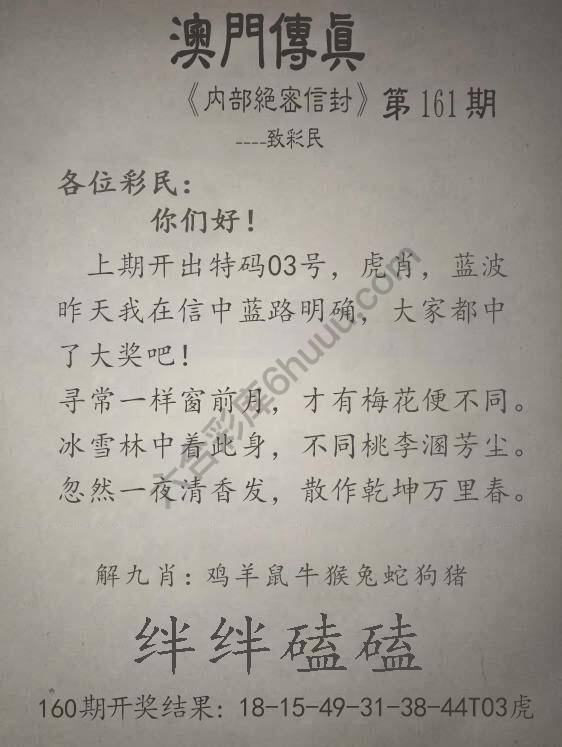 澳門傳真
《内部絕密信封》第161期
----致彩民
各位彩民：
你们好！
上期开出特码03号，虎肖，蓝波
昨天我在信中蓝路明确，大家都中
了大奖吧！
寻常一样窗前月，才有梅花便不同。
冰雪林中着此身，不同桃李溷芳尘。
忽然一夜清香发，散作乾坤万里春。
解九肖：鸡羊鼠牛猴兔蛇狗猪
绊绊磕磕
160期开奖结果：18-15-49-31-38-44T03虎
六合彩库6huuu.com